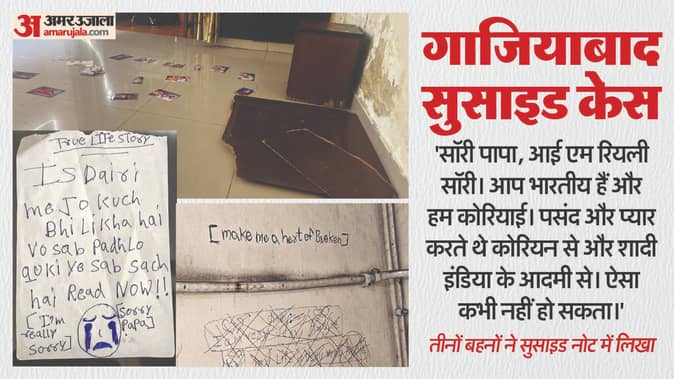 अमरउजाला
amarujala.com
गाजियाबाद
सुसाइड केस
'सॉरी पापा, आई एम रियली
सॉरी। आप भारतीय हैं और
हम कोरियाई। पसंद और प्यार
करते थे कोरियन से और शादी
इंडिया के आदमी से। ऐसा
कभी नहीं हो सकता।'
तीनों बहनों ने सुसाइड नोट में लिखा
True Life Story
Is Dairi
me Jo kuch
Bhi Likha hai
Vo sab Padhlo
quki ye sab sach
hai Read NOW!!
[I'm really sorry]
[sorry Papa]
[make me a hert of Broken]